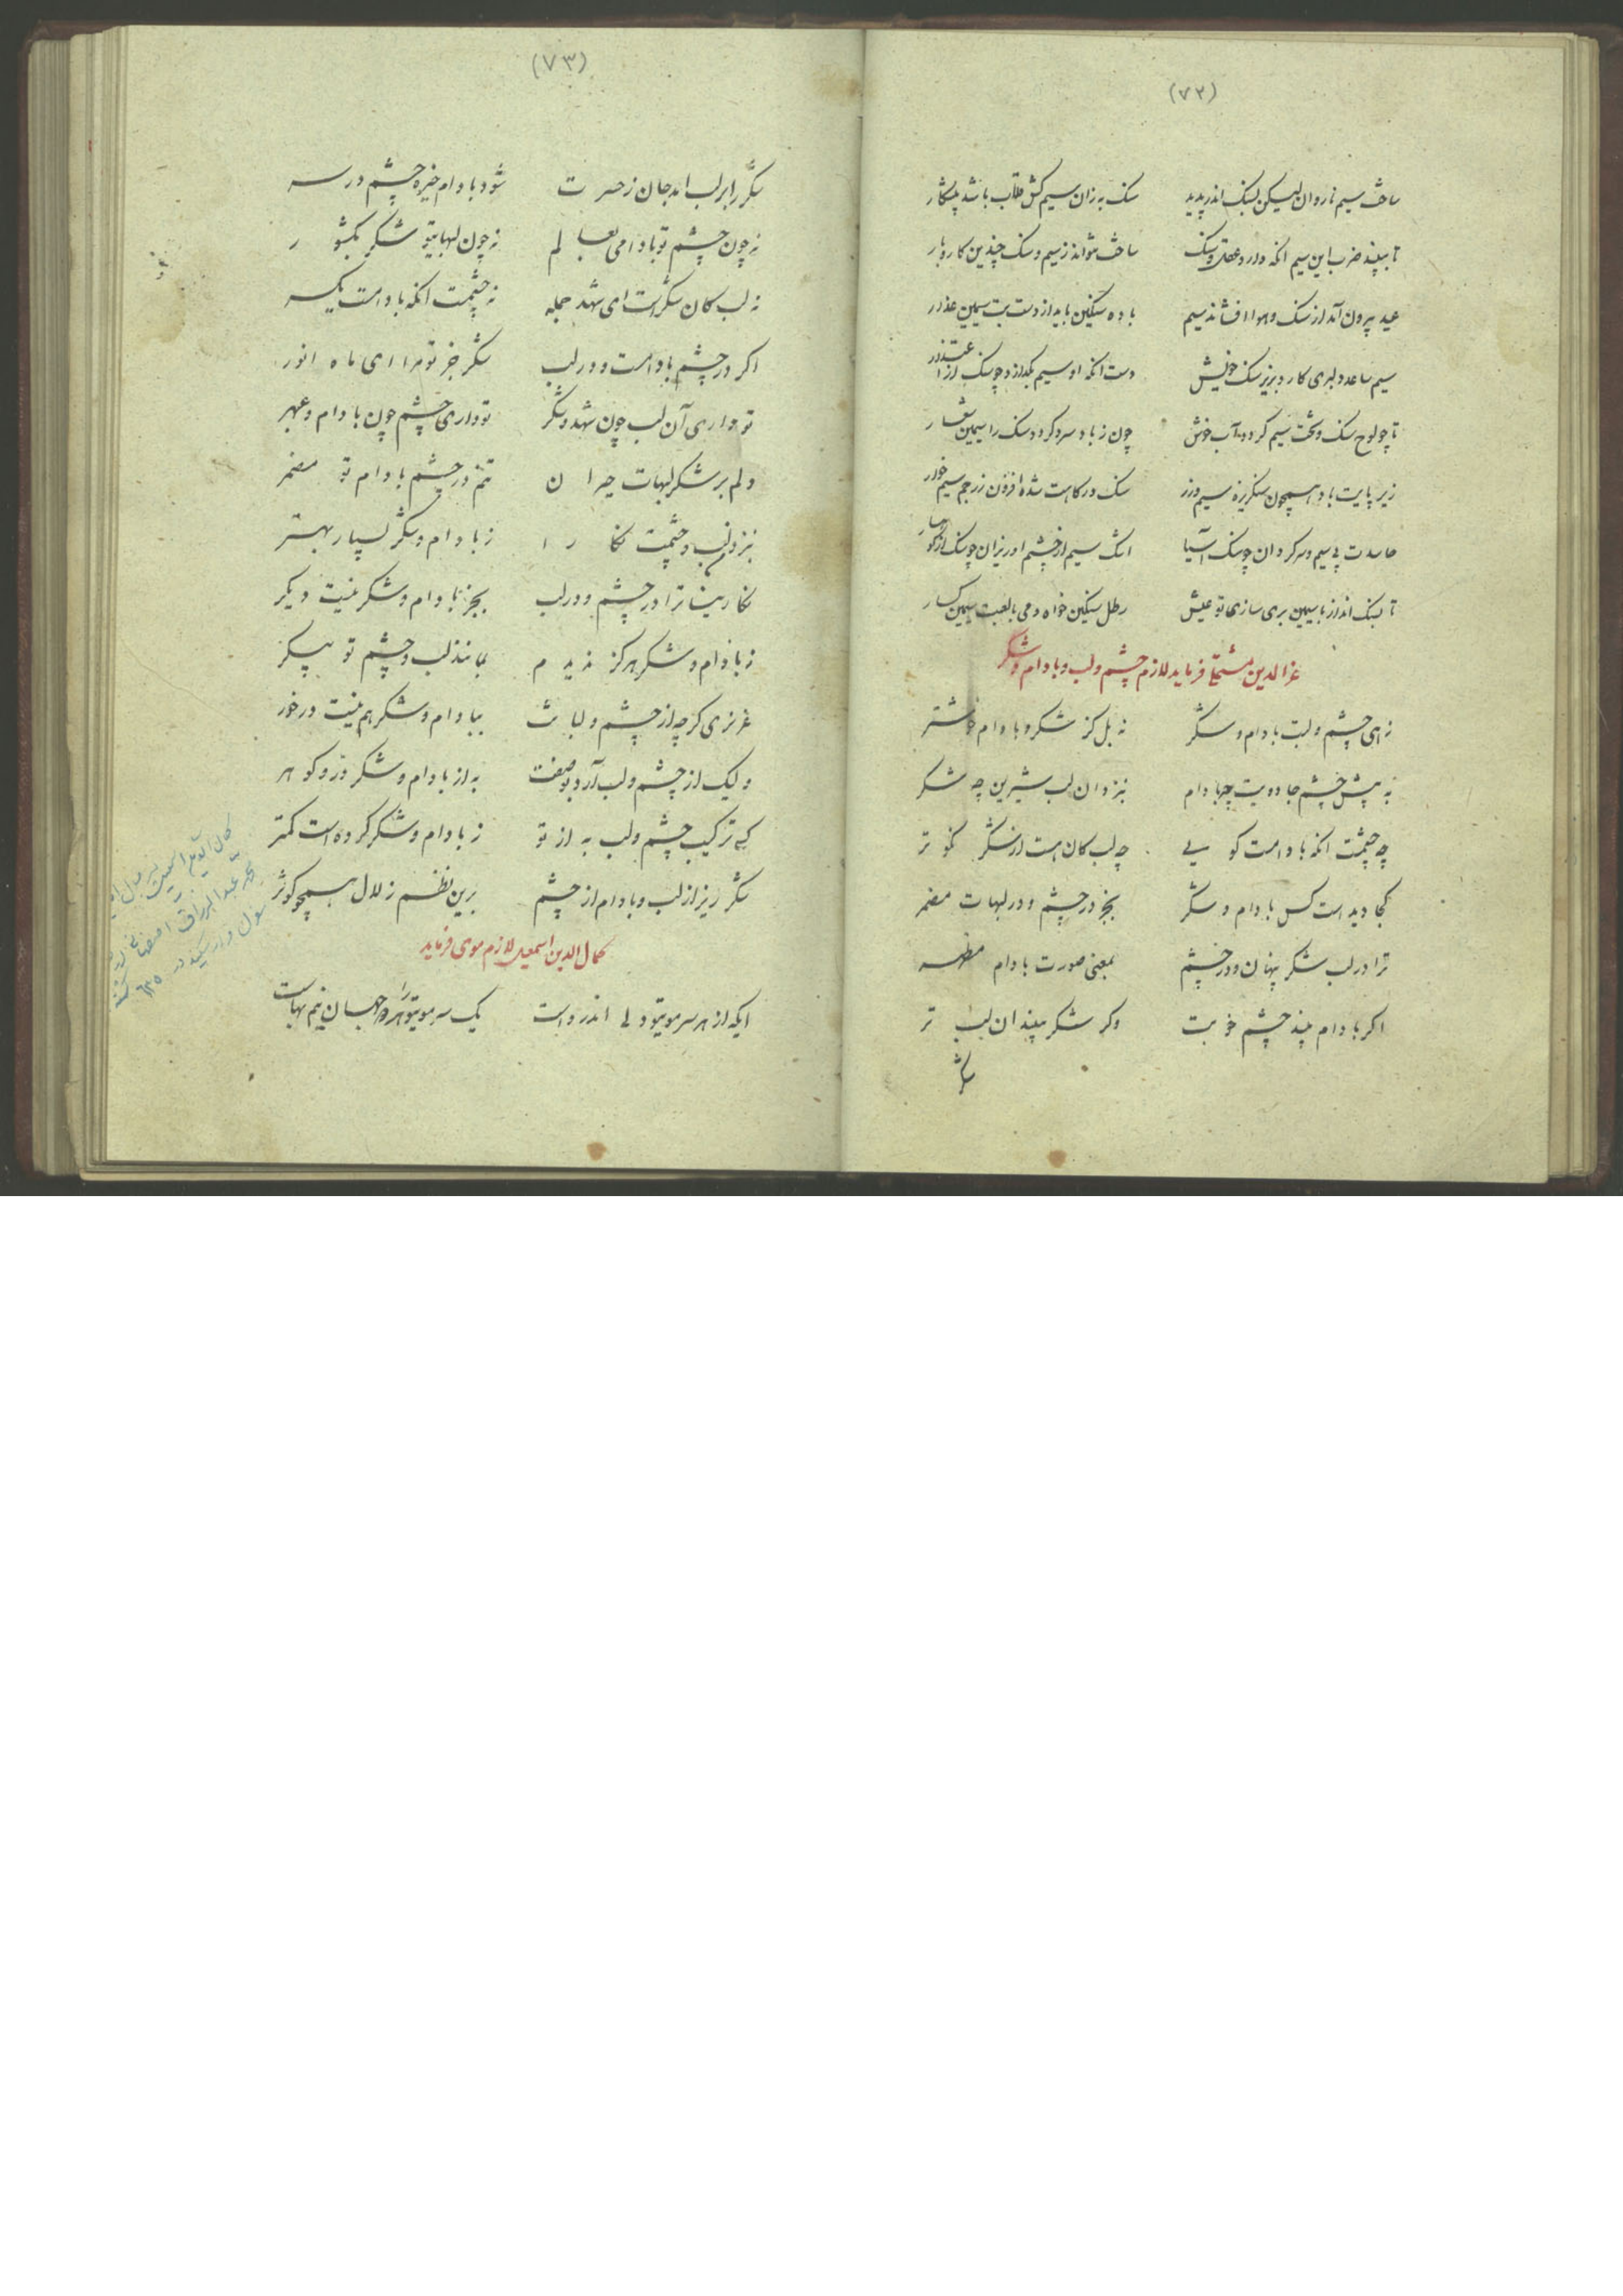 (۷۲)
ساخت سیم ناروان لیکن بسنک اندر پدید سنک به زان سیم کش قلاب باشد پیشکار
تا ببیند ضرب این سیم انکه دارد عقل و سنک ساخت نتواند ز سیم و سنک چندین کاروبار
عید بیرون آمد از سنک و هوا افشاند سیم باده سنگین باید از دست بت سیمین عذار
سیم ساعد دلبری کاردبزیر سنک خویش دست انکه او سیم بکدازد چو سنک از
تا چو لوح سنک و تخت سیم کردد آب خوش چون ز باد سرد کردد سنک را سیمین شعار
زیر پایت باد همچون سنکریزه سیم و زر سنک درکاهت شده افزون ز زر جم سیم خوار
حاسدت بی سیم و سرکردان چو سنک آسیا اشک سیم از چشم او ریزان چو سنک از کوهسار
تا بسنک انداز با سیمین بری سازی تو عیش رطل سنکین خواه و می با لعبت سیمین کسار
عزالدین فرماید لازم چشم و لب و بادام و شکر
زهی چشم و لبت بادام و شکر نه بل کز شکر و بادام خوشتر
به پیش چشم جادویت چه بادام بنزد ان لب شیرین چه شکر
چه چشمت انکه بادامست کویی چه لب کان است از شکر نکوتر
کجا دیده است کس بادام و شکر بجز در چشم و در لبهات مضمر
ترا در لب شکر پنهان و در چشم بمعنی صورت بادام مظهر
اکر بادام بیند چشم خوبت وکر شکر ببیند ان لب تر
شکر
(۷۳)
شکر را بر لب امد جان ز حسرت شود بادام خیره چشم در سر
نه چون چشم تو بادامی بعالم نه چون لبهایتو شکر بکشور
نه لب کان شکرست ای شهد جمله نه چشمت انکه بادامست یکسر
اکر در چشم بادامست و در لب شکر جز تو مرا ای ماه انور
تو داری آن لب چون شهد و شکر تو داری چشم چون بادام و عبهر
دلم بر شکر لبهات حیران تنم در چشم بادام تو مضمر
بنزد لب و چشمت نکارا ز بادام و شکر بسیار بهتر
نکارینا ترا در چشم و در لب بجز بادام و شکر نیست دیکر
ز بادام و شکر هرکز ندیدم بمانند لب و چشم تو پیکر
عزیزی کرچه از چشم و لبانت ببادام و شکر هم نیست درخور
ولیک از چشم و لب آرد بوصفت به از بادام و شکر در و کوهر
کی ترکیب چشم و لب به از تو ز بادام و شکر کرده است کمتر
شکر ریز از لب و بادام از چشم برین نظم زلال همچو کوثر
کمال الدین اسمعیل لازم موی فرماید
ایکه از هر سر مویتو دلی اندرواست یک سر مویتو را هر دو جهان نیم بهاست
کمال الدین اسمعیل
عبدالرزاق اصفهانی
در ۶۳۵